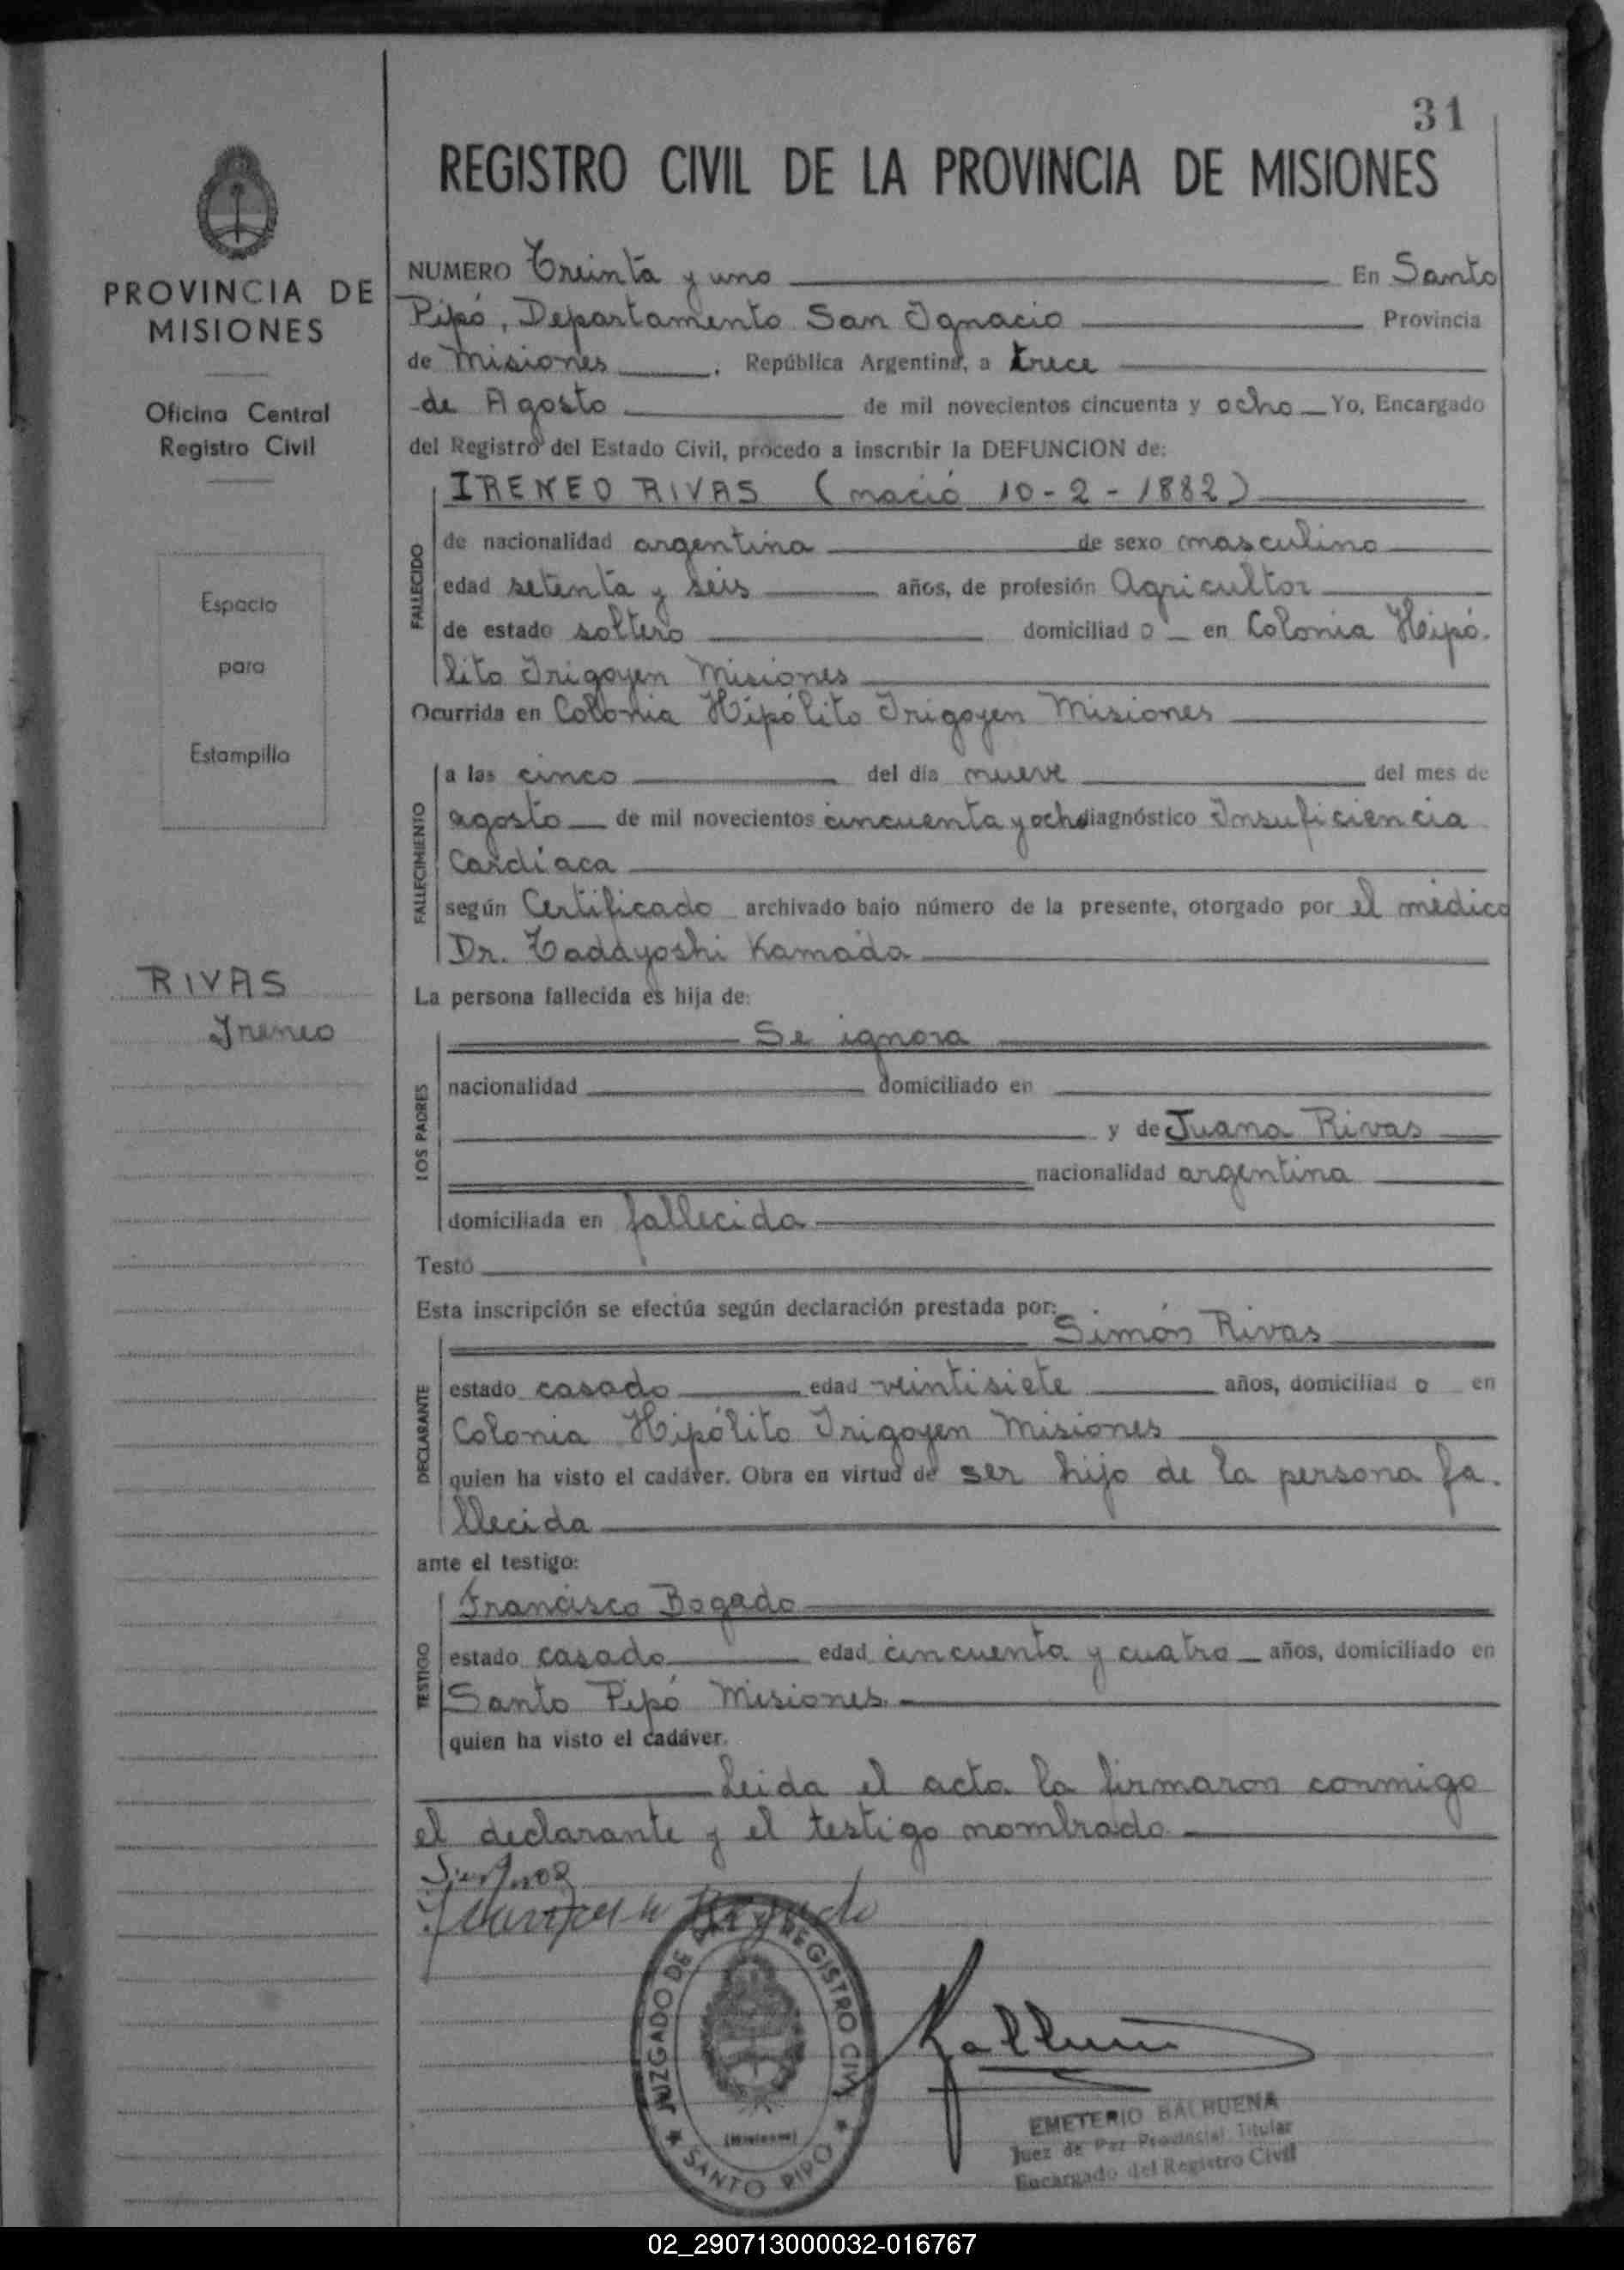 31
REGISTRO CIVIL DE LA PROVINCIA DE MISIONES
PROVINCIA DE
MISIONES
Oficina Central
Registro Civil
Espacio
para
Estampilla
RIVAS
Ireneo
NUMERO Treinta y uno En Santo
Pipó, Departamento San Ignacio Provincia
de Misiones, República Argentina, a trece
de Agosto de mil novecientos cincuenta y ocho Yo, Encargado
del Registro del Estado Civil, procedo a inscribir la DEFUNCION de:
FALLECIDO
IRENEO RIVAS (nació 10-2-1882)
de nacionalidad argentina de sexo masculino
edad setenta y seis años, de profesión Agricultor
de estado soltero domiciliad o en Colonia Hipó.
lito Irigoyen Misiones
Ocurrida en Colonia Hipólito Irigoyen Misiones
FALLECIMIENTO
a las cinco del día nueve del mes de
agosto de mil novecientos cincuenta y ocho diagnóstico Insuficiencia
Cardíaca
según Certificado archivado bajo número de la presente, otorgado por el médico
Dr. Tadayoshi Kamada
La persona fallecida es hija de:
LOS PADRES
Se ignora
nacionalidad domiciliado en
y de Juana Rivas
nacionalidad argentina
domiciliada en fallecida
Testó
Esta inscripción se efectúa según declaración prestada por:
DECLARANTE
Simón Rivas
estado casado edad veintisiete años, domiciliad o en
Colonia Hipólito Irigoyen Misiones
quien ha visto el cadáver. Obra en virtud de ser hijo de la persona fa.
llecida
ante el testigo:
TESTIGO
Francisco Bogado
estado casado edad cincuenta y cuatro años, domiciliado en
Santo Pipó Misiones
quien ha visto el cadáver.
Leida el acta la firmaron conmigo
el declarante y el testigo nombrado
JUZGADO DE PAZ Y REGISTRO CIVIL
(Misiones)
★ SANTO PIPO ★
EMETERIO BALBUENA
Juez de Paz Provincial Titular
Encargado del Registro Civil
02_290713000032-016767